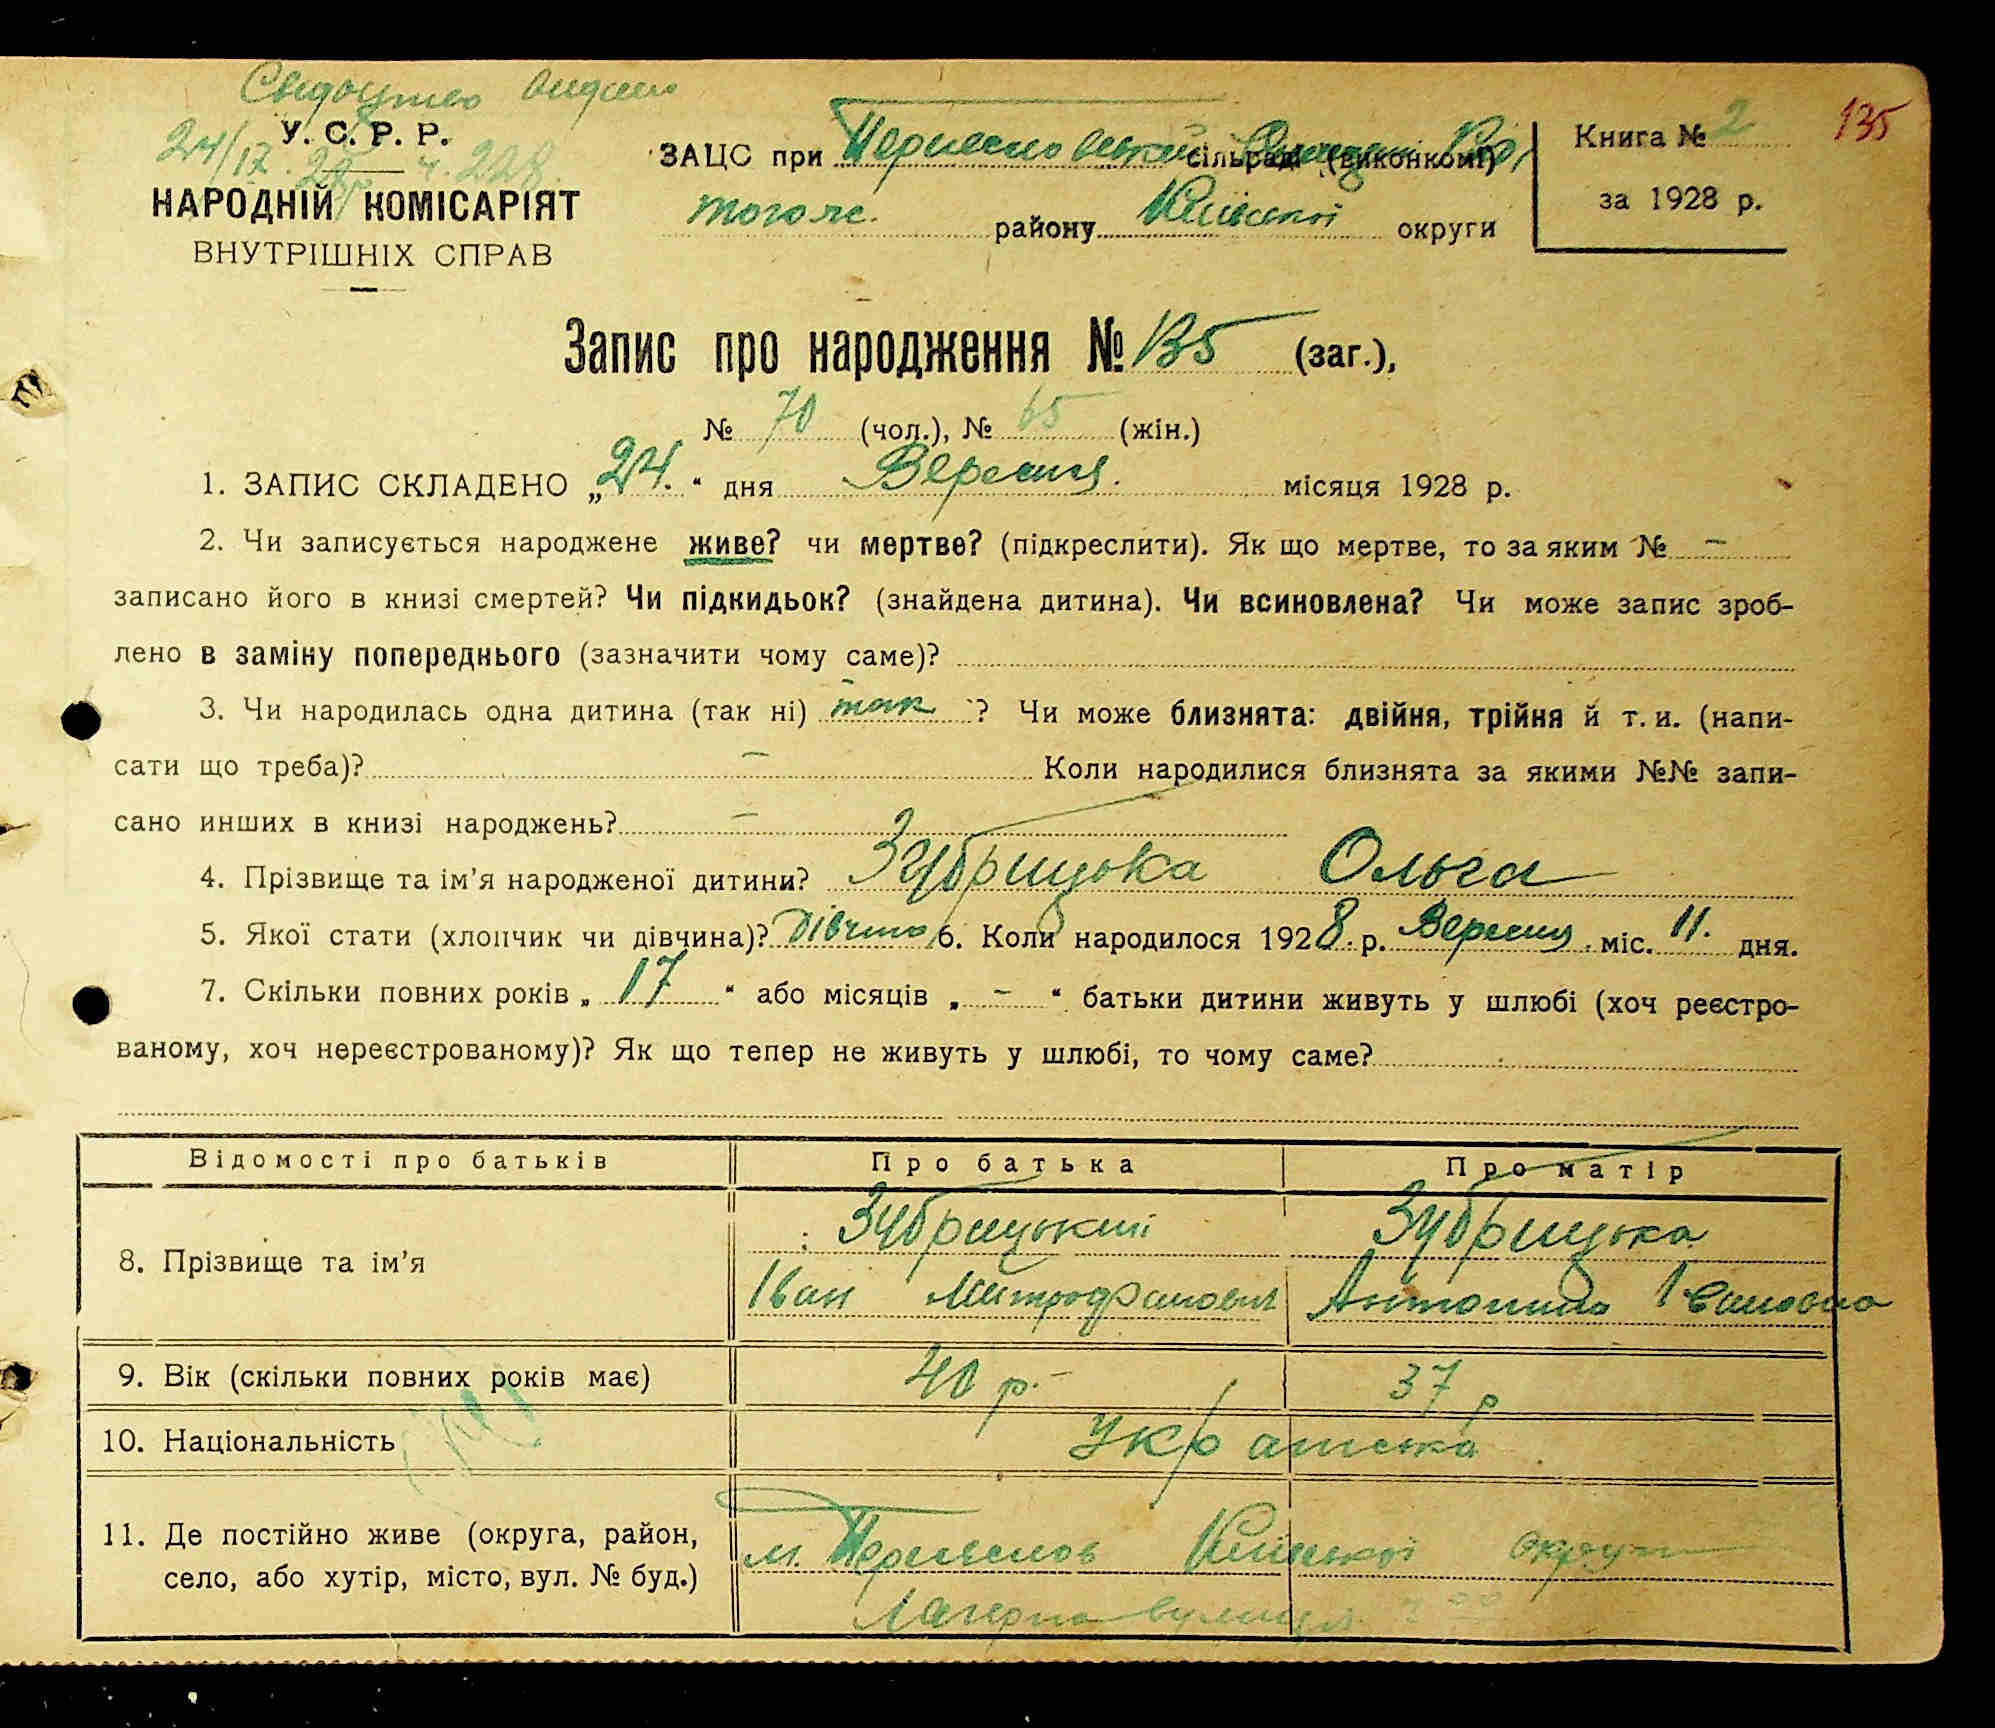 Свидоцтво видано
24/IX.28р. ч. 228.
135
У. С. Р. Р.
НАРОДНІЙ КОМІСАРІЯТ
ВНУТРІШНІХ СПРАВ
ЗАЦС при сільраді (виконкомі)
тогож. району Київської округи
Книга № 2
за 1928 р.
Запис про народження № 135 (заг.),
№ 70 (чол.), № 65 (жін.)
1. ЗАПИС СКЛАДЕНО „24.“ дня Вересня. місяця 1928 р.
2. Чи записується народжене живе? чи мертве? (підкреслити). Як що мертве, то за яким № –
записано його в книзі смертей? Чи підкидьок? (знайдена дитина). Чи всиновлена? Чи може запис зроб-
лено в заміну попереднього (зазначити чому саме)?
3. Чи народилась одна дитина (так ні) так ? Чи може близнята: двійня, трійня й т. и. (напи-
сати що треба)? – Коли народилися близнята за якими №№ запи-
сано инших в книзі народжень? –
4. Прізвище та ім’я народженої дитини? Зубрицька Ольга
5. Якої стати (хлопчик чи дівчина)? Дівчина 6. Коли народилося 1928. р. Вересня. міс. 11. дня.
7. Скільки повних років „ 17 “ або місяців „ – “ батьки дитини живуть у шлюбі (хоч реєстро-
ваному, хоч нереєстрованому)? Як що тепер не живуть у шлюбі, то чому саме?
Відомості про батьків Про батька Про матір
8. Прізвище та ім’я Зубрицький Зубрицька
Іван Митрофанович Антонина Івановна
9. Вік (скільки повних років має) 40 р.– 37 р
10. Національність Українська
11. Де постійно живе (округа, район, м. Переяслов Київської округи
село, або хутір, місто, вул. № буд.) Лагерна вулиця